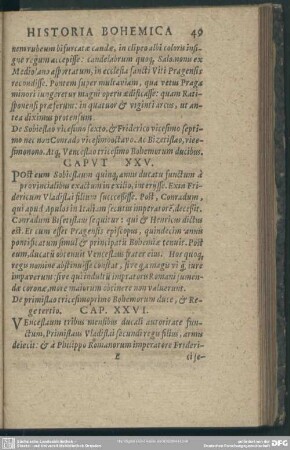 HISTORIA BOHEMICA 49
nem rubeum bifurcatæ caudæ, in clipeo albi coloris insi-
gne regium accepisse: candelabrum quoq; Salomonis ex
Mediolano asportatum, in ecclesia sancti Viti Pragensis
recondisse. Pontem super multaviam, qua vetus Praga
minori iungeretur magni operis ædificasse: quem Ratis-
ponensi præferunt: in quatuor & viginti arcus, ut an-
tea diximus protensum.
De Subieslao vicesimo sexto, & Friderico vicesimo septi-
mo nec non Conrado vicesimooctavo. Ac Bizetislao, vice-
simonono. Atq; Venceslao tricesimo Bohemorum ducibus.
CAPVT XXV.
Post eum Sobieslaum quinq; annis ducatu functum à
provincialibus exactum in exilio, interisse. Exin Fri-
dericum Vladislai filium successisse. Post, Conradum,
qui apud Apulos in Italiam secutus imperatorē, decessit.
Conradum Bicetislaus sequitur: qui & Henricus dictus
est. Et cum esset Pragensis episcopus, quindecim annis
pontificatum simul & principatū Bohemiæ tenuit. Post
eum, ducatū obtinuit Venceslaus frater eius. Hos quoq;
regis nomine abstinuisse constat, sive q̄ magis vi q̄ iure
imperaverunt: sive qui indultū imperatoris Romani sumen-
dæ coronæ, more maiorum obtinere non valuerunt.
De primislao tricesimoprimo Bohemorum duce, & Re-
ge tertio. CAP. XXVI.
VEnceslaum tribus mensibus ducali autoritate fun-
ctum, Primislaus Vladislai secundi regis filius, armis
deiecit: & à Philippo Romanorum imperatore Frideri-
ci je-